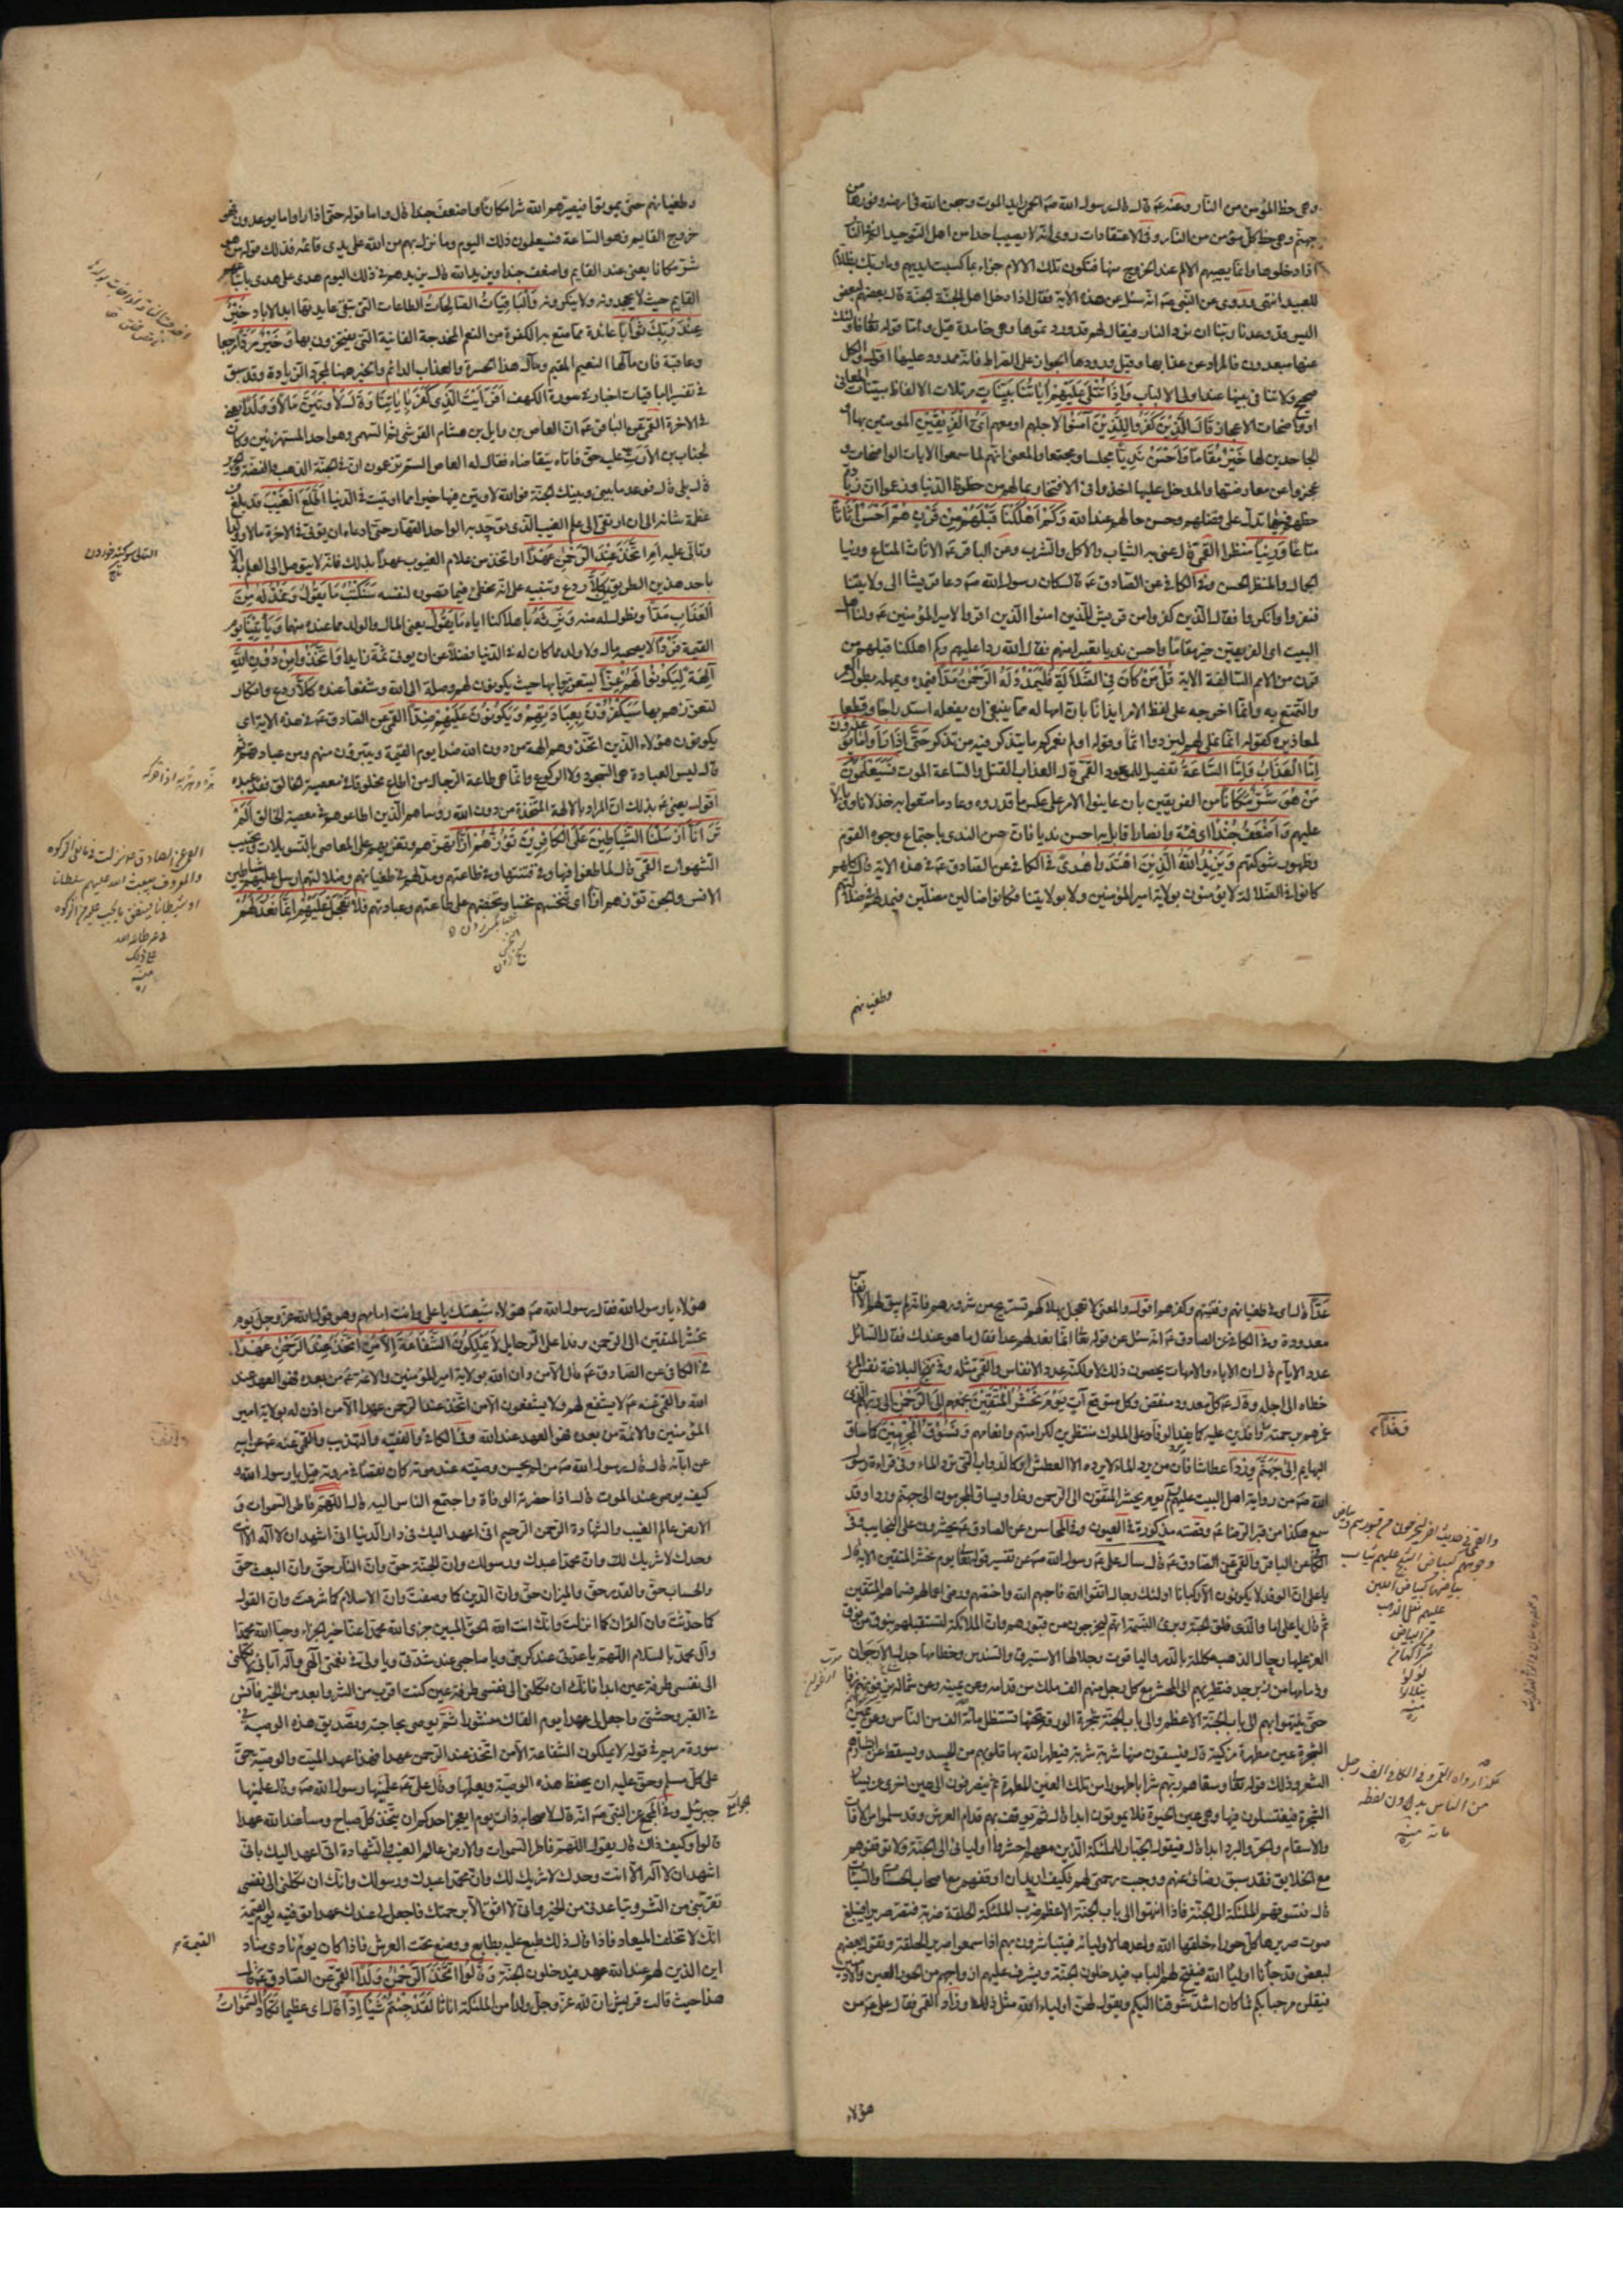 وهي حظ المؤمن من النار وعنه عـ قال قال رسول الله صـ الحمى رايد الموت وسجن الله في ارضه وفورها من
جهنم وهي حظ كل مؤمن من النار وفي الاعتقادات روى انه لا يصيب احدا من اهل التوحيد الم في النار
اذا دخلوها وانما يصيبهم الالم عند الخروج منها فتكون تلك الالام جزاء بما كسبت ايديهم وما ربك بظلام
للعبيد انتهى وروي عن النبي صـ انه سئل عن هذه الاية فقال اذا دخل اهل الجنة الجنة قال بعضهم لبعض
اليس قد وعدنا ربنا ان نرد النار فيقال لهم قد وردتموها وهي خامدة قيل واما قوله تعالى اولئك
عنها مبعدون فالمراد عن عذابها وقيل ورودها الجواز على الصراط فانه ممدود عليها اقول والكل
صحيح ولا تنافي بينها عند اولي الالباب واذا تتلى عليهم اياتنا بينات مرتلات الالفاظ مبينات المعاني
او واضحات الاعجاز قال الذين كفروا للذين آمنوا لاجلهم او معهم اي الفريقين المؤمنين بها او
الجاحدين لها خير مقاما واحسن نديا مجلسا ومجتمعا والمعنى انهم لما سمعوا الايات الواضحات و
عجزوا عن معارضتها والدخل عليها اخذوا في الافتخار بما لهم من حظوظ الدنيا وزعموا ان زيادة
حظهم فيها تدل على فضلهم وحسن حالهم عند الله وكم اهلكنا قبلهم من قرن هم احسن اثاثا
متاعا ورئيا منظرا القمي قال عنى به الثياب والاكل والشرب وعن الباقر عـ الاثاث المتاع ورئيا
الجمال والمنظر الحسن وفي الكافي عن الصادق عـ قال كان رسول الله صـ دعا قريشا الى ولايتنا
فنفروا وانكروا فقال الذين كفروا من قريش للذين امنوا الذين اقروا لامير المؤمنين عـ ولنا اهل
البيت اي الفريقين خير مقاما واحسن نديا تعييرا منهم فقال الله ردا عليهم وكم اهلكنا قبلهم من
قرن من الامم السالفة الاية قل من كان في الضلالة فليمدد له الرحمن مدا فيمده ويمهله بطول العمر
والتمتع به وانما اخرجه على لفظ الامر ايذانا بان امهاله مما ينبغي ان يفعله استدراجا وقطعا
لمعاذيره كقوله انما نملي لهم ليزدادوا اثما وقوله اولم نعمركم ما يتذكر فيه من تذكر حتى اذا راوا ما يوعدون
اما العذاب واما الساعة تفصيل للموعود القمي قال العذاب القتل والساعة الموت فسيعلمون
من هو شر مكانا من الفريقين بان عاينوا الامر على عكس ما قدروه وعاد ما متعوا به خذلانا ووبالا
عليهم واضعف جندا اي فئة وانصارا قابل به احسن نديا فان حسن الندي باجتماع وجوه القوم
وظهور شوكتهم ويزيد الله الذين اهتدوا هدى في الكافي عن الصادق عـ في هذه الاية قال كلهم
كانوا في الضلالة لا يؤمنون بولاية امير المؤمنين ولا بولايتنا فكانوا ضالين مضلين فيمد لهم في ضلالتهم
وطغيانهم
وطغيانهم حتى يموتوا فيصيرهم الله شرا مكانا واضعف جندا قال واما قوله حتى اذا راوا ما يوعدون فهو
خروج القايم وهو الساعة فسيعلمون ذلك اليوم وما نزل بهم من الله على يدي قائمه فذلك قوله من هو
شر مكانا يعني عند القايم واضعف جندا ويزيد الله قال يزيدهم في ذلك اليوم هدى على هدى باتباعهم
القايم حيث لا يجحدونه ولا ينكرونه والباقيات الصالحات الطاعات التي تبقى عايدتها ابد الاباد خير
عند ربك ثوابا عائدة مما متع به الكفرة من النعم المخدجة الفانية التي يفتخرون بها وخير مردا مرجعا
وعاقبة فان مآلها النعيم المقيم ومآل هذا الحسرة والعذاب الدائم والخير ههنا لمجرد الزيادة وقد سبق
في تفسير الباقيات اخبار في سورة الكهف افرايت الذي كفر باياتنا وقال لاوتين مالا وولدا يعني
في الاخرة القمي عن الباقر عـ ان العاص بن وايل بن هشام القرشي ثم السهمي وهو احد المستهزئين وكان
لخباب بن الارت عليه حق فاتاه يتقاضاه فقال له العاص الستم تزعمون ان في الجنة الذهب والفضة والحرير
قال بلى قال فموعد ما بيني وبينك الجنة فوالله لاوتين فيها خيرا مما اوتيت في الدنيا اطلع الغيب قد بلغ من
عظمة شانه الى ان ارتقى الى علم الغيب الذي توحد به الواحد القهار حتى ادعاء ان يؤتى في الاخرة مالا وولدا
وتألى عليه ام اتخذ عند الرحمن عهدا او اتخذ من علام الغيوب عهدا بذلك فانه لا يتوصل الى العلم به الا
باحد هذين الطريقين كلا ردع وتنبيه على انه مخطئ فيما تصوره لنفسه سنكتب ما يقول ونمد له من
العذاب مدا ونطول له منه ونرثه باهلاكنا اياه ما يقول يعني المال والولد مما عنده منهما وياتينا يوم
القيمة فردا لا يصحبه مال ولا ولد مما كان له في الدنيا فضلا عن ان يوتى ثمة زايدا واتخذوا من دون الله
آلهة ليكونوا لهم عزا ليتعززوا بها حيث يكونون لهم وصلة الى الله وشفعاء عنده كلا ردع وانكار
لتعززهم بها سيكفرون بعبادتهم ويكونون عليهم ضدا القمي عن الصادق عـ في هذه الاية اي
يكونون هؤلاء الذين اتخذوهم الهة من دون الله ضدا يوم القيمة ويتبرؤن منهم ومن عبادتهم ثم
قال ليس العبادة هي السجود ولا الركوع وانما هي طاعة الرجال من اطاع مخلوقا في معصية الخالق فقد عبده
اقول يعني عـ بذلك ان المراد بالالهة المتخذة من دون الله رؤساهم الذين اطاعوهم في معصية الخالق الم
تر انا ارسلنا الشياطين على الكافرين تؤزهم ازا تهزهم وتغريهم على المعاصي بالتسويلات وتحبيب
الشهوات القمي قال لما طغوا فيها وفي فتنتها وفي طاعتهم ومد لهم في طغيانهم وضلالتهم ارسل عليهم شياطين
الانس والجن تؤزهم ازا اي تنخسهم نخسا وتحضهم على طاعتهم وعبادتهم فلا تعجل عليهم انما نعد لهم
عدا قال اي في طغيانهم وفتنتهم وكفرهم اقول والمعنى لا تعجل بهلاكهم لتستريح من شرورهم فانه لم يبق لهم الا انفاس
معدودة وفي الكافي عن الصادق عـ انه سئل عن قوله تعالى انما نعد لهم عدا فقال ما هو عندك فقال السائل
عدد الايام قال ان الاباء والامهات يحصون ذلك لا ولكنه عدد الانفاس والقمي مثله وفي نهج البلاغة نفس المرء
خطاه الى اجله وقال عـ كل معدود منقض وكل متوقع آت يوم نحشر المتقين نجمعهم الى الرحمن الى ربهم الذي
غمرهم برحمته وافدين عليه كما يفد الوفاد على الملوك منتظرين لكرامتهم وانعامهم ونسوق المجرمين كما يساق
البهايم الى جهنم وردا عطاشا فان من يرد الماء لا يرده الا لعطش او كالدواب التي ترد الماء وفي قراءة رسول
الله صـ من رواية اهل البيت عليهم السلام يوم يحشر المتقون الى الرحمن وفدا ويساق المجرمون الى جهنم وردا وقد
سمع هكذا من قبر الرضا عـ وقصته مذكورة في العيون وفي المحاسن عن الصادق عـ يحشرون على النجايب وفي
الكافي عن الباقر والقمي عن الصادق عـ قال سال علي عـ رسول الله صـ عن تفسير قوله تعالى يوم نحشر المتقين الاية قال
يا علي ان الوفد لا يكونون الا ركبانا اولئك رجال اتقوا الله فاحبهم الله واختصهم ورضي اعمالهم فسماهم المتقين
ثم قال يا علي اما والذي فلق الحبة وبرئ النسمة انهم ليخرجون من قبورهم وان الملائكة لتستقبلهم بنوق من نوق
العز عليها رحال الذهب مكللة بالدر والياقوت وجلالها الاستبرق والسندس وخطامها جدل الارجوان
وزمامها من زبرجد فتطير بهم الى المحشر مع كل رجل منهم الف ملك من قدامه وعن يمينه وعن شماله يزفونهم زفا
حتى ينتهوا بهم الى باب الجنة الاعظم وعلى باب الجنة شجرة الورقة تحتها تستظل مائة الف من الناس وعن يمين
الشجرة عين مطهرة مزكية قال فيسقون منها شربة شربة فيطهر الله بها قلوبهم من الحسد ويسقط عن ابشارهم
الشعر وذلك قوله تعالى وسقاهم ربهم شرابا طهورا من تلك العين المطهرة ثم يصرفون الى عين اخرى عن يسار
الشجرة فيغتسلون فيها وهي عين الحيوة فلا يموتون ابدا قال ثم يوقف بهم قدام العرش وقد سلموا من الافات
والاسقام والحر والبرد ابدا قال فيقول الجبار للملئكة الذين معهم احشروا اوليائي الى الجنة ولا توقفوهم
مع الخلايق فقد سبق رضائي عنهم ووجبت رحمتي لهم فكيف اريد ان اوقفهم مع اصحاب الحسنات والسيئات
قال فتسوقهم الملئكة الى الجنة فاذا انتهوا الى باب الجنة الاعظم ضرب الملئكة الحلقة ضربة فتصر صريرا فيبلغ
صوت صريرها كل حوراء خلقها الله واعدها لاوليائه فيتباشرون بهم اذا سمعوا صرير الحلقة ويقول بعضهم
لبعض قد جاءنا اولياء الله فيفتح لهم الباب فيدخلون الجنة ويشرف عليهم ازواجهم من الحور العين والادميين
فيقلن مرحبا بكم فما كان اشد شوقنا اليكم ويقول لهن اولياء الله مثل ذلك وزاد القمي فقال علي عـ من
هؤلاء
هؤلاء يا رسول الله فقال رسول الله صـ هؤلاء شيعتك يا علي وانت امامهم وهو قول الله عز وجل يوم
نحشر المتقين الى الرحمن وفدا على الرحايل لا يملكون الشفاعة الا من اتخذ عند الرحمن عهدا
في الكافي عن الصادق عـ قال الا من دان الله بولاية امير المؤمنين والائمة عـ من بعده فهو العهد عند
الله والقمي عنه عـ لا يشفع لهم ولا يشفعون الا من اتخذ عند الرحمن عهدا الا من اذن له بولاية امير
المؤمنين والائمة من بعده فهو العهد عند الله وفي الكافي والفقيه والتهذيب والقمي عنه عـ عن ابيه
عن ابائه قال قال رسول الله صـ من لم يحسن وصيته عند موته كان نقصا في مروته قيل يا رسول الله و
كيف يوصي عند الموت قال اذا حضرته الوفاة واجتمع الناس اليه قال اللهم فاطر السموات و
الارض عالم الغيب والشهادة الرحمن الرحيم اني اعهد اليك في دار الدنيا اني اشهد ان لا اله الا انت
وحدك لا شريك لك وان محمدا عبدك ورسولك وان الجنة حق وان النار حق وان البعث حق
والحساب حق والقدر حق والميزان حق وان الدين كما وصفت وان الاسلام كما شرعت وان القول
كما حدثت وان القران كما انزلت وانك انت الله الحق المبين جزى الله محمدا عنا خير الجزاء وحيا الله محمدا
وآل محمد بالسلام اللهم يا عدتي عند كربتي ويا صاحبي عند شدتي ويا وليي في نعمتي الهي واله آبائي لا تكلني
الى نفسي طرفة عين ابدا فانك ان تكلني الى نفسي طرفة عين كنت اقرب من الشر وابعد من الخير فآنس
في القبر وحشتي واجعل لي عهدا يوم القاك منشورا ثم يوصي بحاجته وتصديق هذه الوصية في
سورة مريم في قوله لا يملكون الشفاعة الا من اتخذ عند الرحمن عهدا فهذا عهد الميت والوصية حق
على كل مسلم وحق عليه ان يحفظ هذه الوصية ويعلمها وقال علي عـ علمنيها رسول الله صـ وقال علمنيها
جبرئيل وفي الجوامع عن النبي صـ انه قال لاصحابه ذات يوم ايعجز احدكم ان يتخذ كل صباح ومساء عند الله عهدا
قالوا وكيف ذاك قال يقول اللهم فاطر السموات والارض عالم الغيب والشهادة اني اعهد اليك باني
اشهد ان لا اله الا انت وحدك لا شريك لك وان محمدا عبدك ورسولك وانك ان تكلني الى نفسي
تقربني من الشر وتباعدني من الخير واني لا اثق الا برحمتك فاجعل لي عندك عهدا توفنيه يوم القيمة
انك لا تخلف الميعاد فاذا قال ذلك طبع عليه بطابع ووضع تحت العرش فاذا كان يوم نادى مناد
اين الذين لهم عند الله عهد فيدخلون الجنة وقالوا اتخذ الرحمن ولدا القمي عن الصادق عـ قال
هذا حيث قالت قريش ان لله عز وجل ولدا من الملئكة اناثا لقد جئتم شيئا ادا قال اي عظيما تكاد السموات